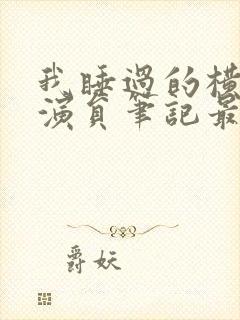 我睡過的橫
演員筆記最
爵妖